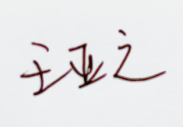 王亚之